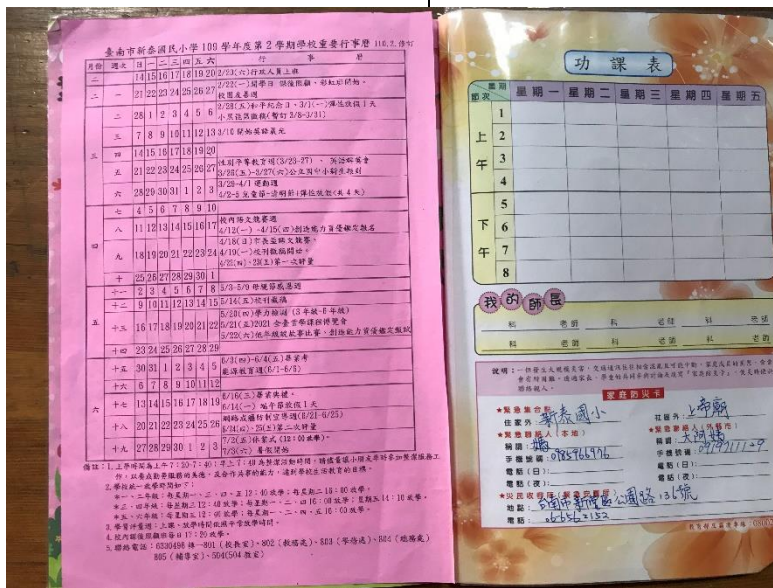 臺南市新泰國民小學109學年度第2學期學校重要行事曆 110.2.修訂
月份 週次 日 一 二 三 四 五 六 行 事 曆
二 14 15 16 17 18 19 20 2/20(六)行政人員上班
一 21 22 23 24 25 26 27 2/22(一)開學日 課後照顧、彩虹班開始。
校園友善週
二 28 1 2 3 4 5 6 2/28(五)和平紀念日、3/1(一)彈性放假1天
三 三 7 8 9 10 11 12 13 3/10開始英語晨光
四 14 15 16 17 18 19 20
五 21 22 23 24 25 26 27 性別平等教育週(3/23-27)、英語歌唱會
六 28 29 30 31 1 2 3 3/29-4/1運動週
4/2-5兒童節-清明節(彈性放假)(共4天)
四 七 4 5 6 7 8 9 10
八 11 12 13 14 15 16 17 校內語文競賽週
4/12(一)-4/15(四)創造能力資優鑑定報名
九 18 19 20 21 22 23 24 4/18(日)市長盃語文競賽。
4/19(一)校刊徵稿開始。
4/22(四)、23(五)第一次評量
十 25 26 27 28 29 30 1
五 十一 2 3 4 5 6 7 8 5/3-5/9母親節感恩週
十二 9 10 11 12 13 14 15 5/14(五)校刊截稿
十三 16 17 18 19 20 21 22 5/20(四)學力檢測(3年級-6年級)
5/21(五)2021全臺首學課程博覽會
5/22(六)低年級說故事比賽、創造能力資優鑑定複試
十四 23 24 25 26 27 28 29
六 十五 30 31 1 2 3 4 5 6/3(四)-6/4(五)畢業考
能源教育週(6/1-6/5)
十六 6 7 8 9 10 11 12
十七 13 14 15 16 17 18 19 6/16(三)畢業典禮。
6/14(一)端午節放假1天
十八 20 21 22 23 24 25 26 網路成癮防制宣導週(6/21-6/25)
6/24(四)、25(五)第二次評量
十九 27 28 29 30 1 2 3 7/2(五)休業式(12:00放學)。
7/3(六)暑假開始
備註:1.上學時間為上午7:30-7:40;早上7:40為整潔活動時間,請儘量讓小朋友準時參加整潔服務工
作,以養成勤勞服務的美德,及合作共事的能力,達到學校生活教育的目標。
2.學校統一放學時間如下:
*一、二年級:每星期一、二、四、五12:40放學;每星期二16:00放學。
3.學習評量週:上課、放學時間依照平常放學時間。
4.校內課後照顧班每日17:20放學。
5.聯絡電話:6330498轉-801(校長室)、802(教務處)、803(學務處)、804(總務處)
805(輔導室)、504(504教室)
功課表
星期 節次 星期一 星期二 星期三 星期四 星期五
上午 1
2
3
4
下午 5
6
7
8
我的師長
科 老師 科 老師 科 老師
科 老師 科 老師 科 老師
家庭防災卡
★緊急集合點
住家外:新泰國小 社區外:上帝廟
★緊急聯絡人(本地) ★緊急聯絡人(外縣市)
稱謂:媽 稱謂:大阿姨
手機號碼: 手機號碼:
電話(日): 電話(日):
電話(夜): 電話(夜):
地點:台南市新營區公園路
電話: